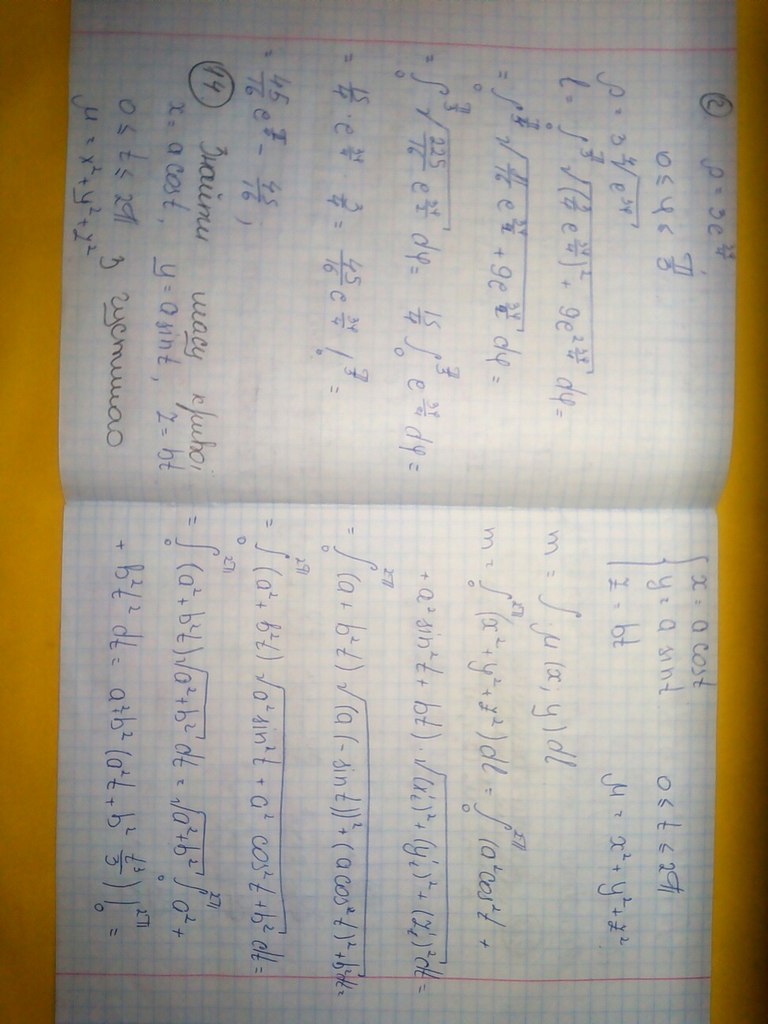 ② ρ = 3e^{3φ/4}
0 ≤ φ ≤ π/3
ρ = 3 ∜(e^{3φ})
l = ∫₀^{π/3} √((9/4 e^{3φ/4})² + 9e^{2·3φ/4}) dφ =
= ∫₀^{π/3} √(81/16 e^{3φ/2} + 9e^{3φ/2}) dφ =
= ∫₀^{π/3} √(225/16 e^{3φ/2}) dφ = 15/4 ∫₀^{π/3} e^{3φ/4} dφ =
= 15/4 · e^{3φ/4} · 3/4 = 45/16 e^{3φ/4} |₀^{π/3} =
= 45/16 e^{π/4} - 45/16 ;
⑭ Знайти масу кривої
x = a cos t, y = a sin t, z = bt
0 ≤ t ≤ 2π з густиною
μ = x² + y² + z²
{ x = a cos t
y = a sin t 0 ≤ t ≤ 2π
z = bt μ = x² + y² + z²
m = ∫ μ (x; y) dl
m = ∫₀^{2π} (x² + y² + z²) dl = ∫₀^{2π} (a² cos² t +
+ a² sin² t + bt) · √((x'_t)² + (y'_t)² + (z'_t)²) dt =
= ∫₀^{2π} (a + b² t) √((a(-sin t))² + (a cos² t)² + b²) dt =
= ∫₀^{2π} (a² + b² t) √(a² sin² t + a² cos² t + b²) dt =
= ∫₀^{2π} (a² + b² t) √(a² + b²) dt = √(a² + b²) ∫₀^{2π} a² +
+ b² t² dt = a² + b² (a² t + b² t³/3) |₀^{2π} =